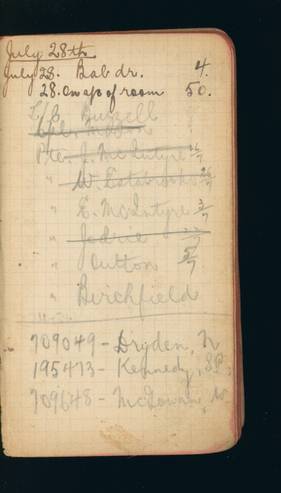 July 28th
July 28. Bal dr. 4.
28. on a/c of room 50.
L/C Buzzell
Cpl.
Pte. J. McIntyre
" W. Estabrooks
" E. McIntyre 3/7
" Jedrie
" Dutton 5/7
" Birchfield
709049 - Dryden, N
195473 - Kennedy, S.P.
709648 - McGowan,